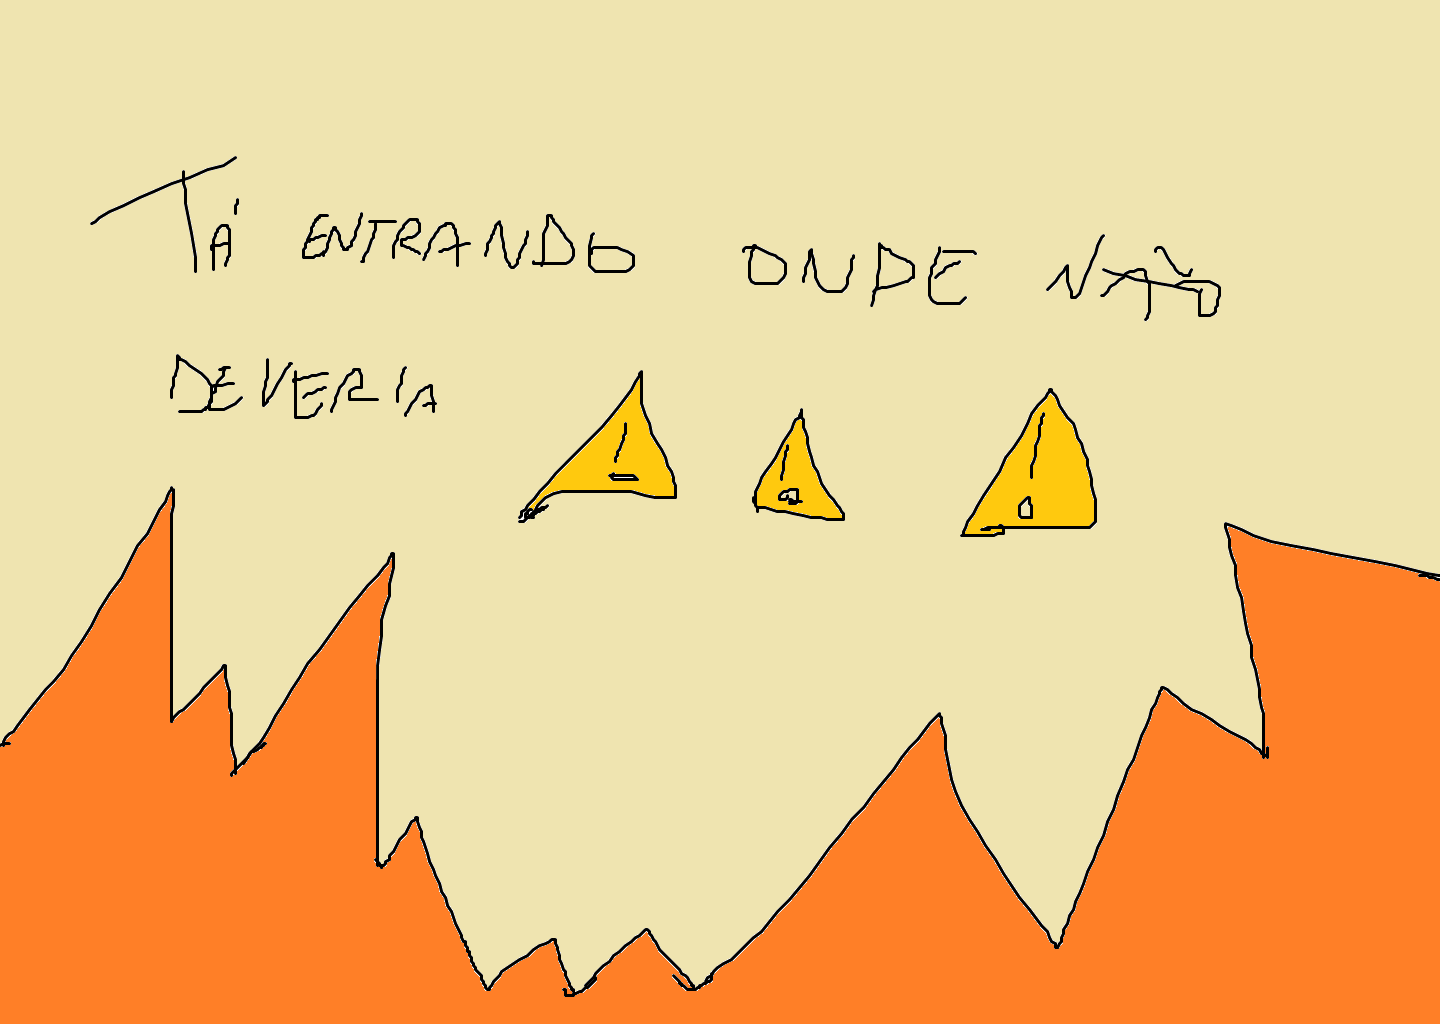 TÁ ENTRANDO ONDE NÃO
DEVERIA
! ! !